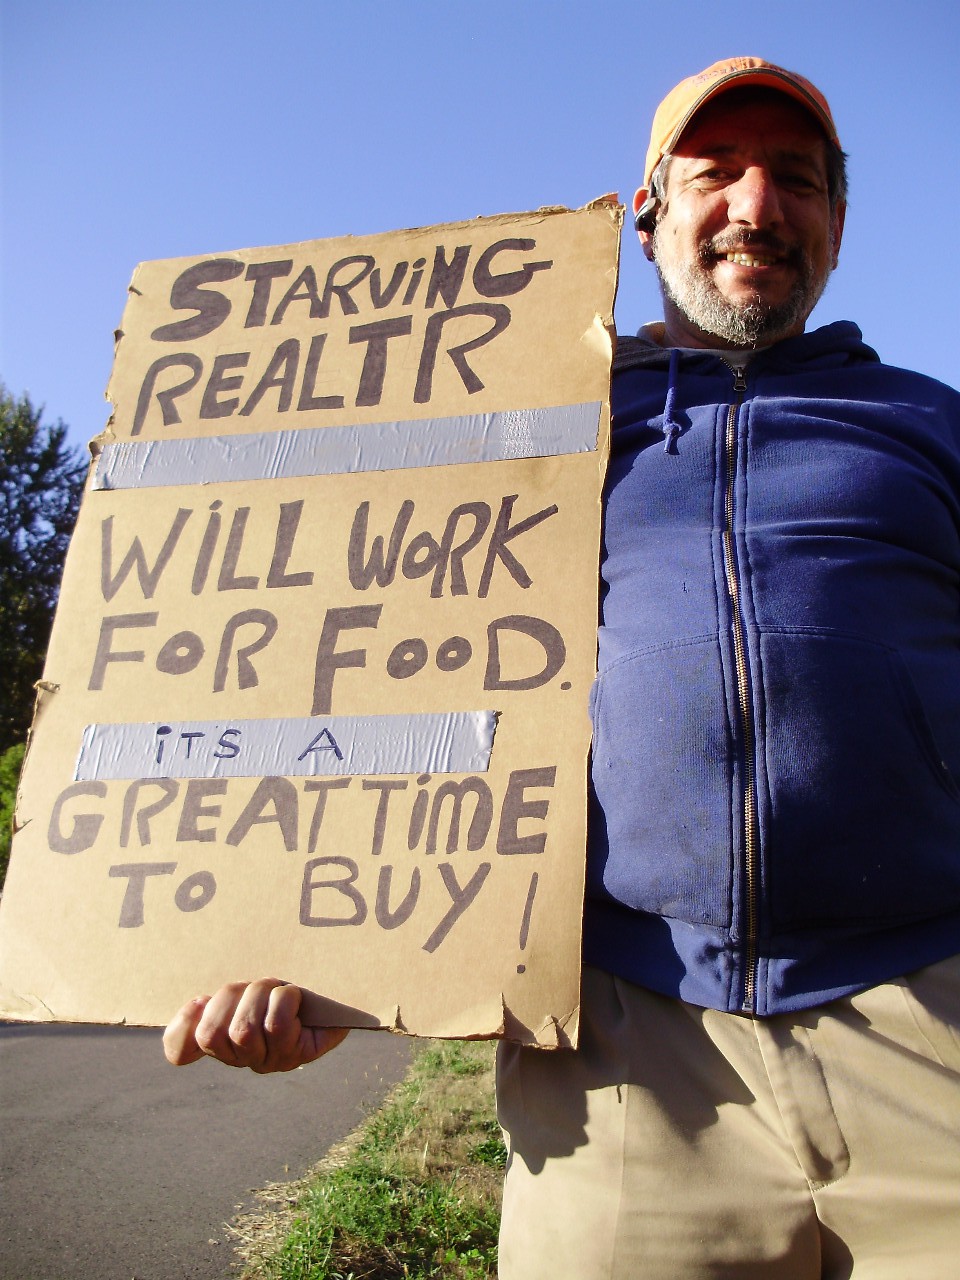 STARViNG
REALTR
WiLL WoRK
FoR FooD.
iTS A
GREAT TiME
To BUY!